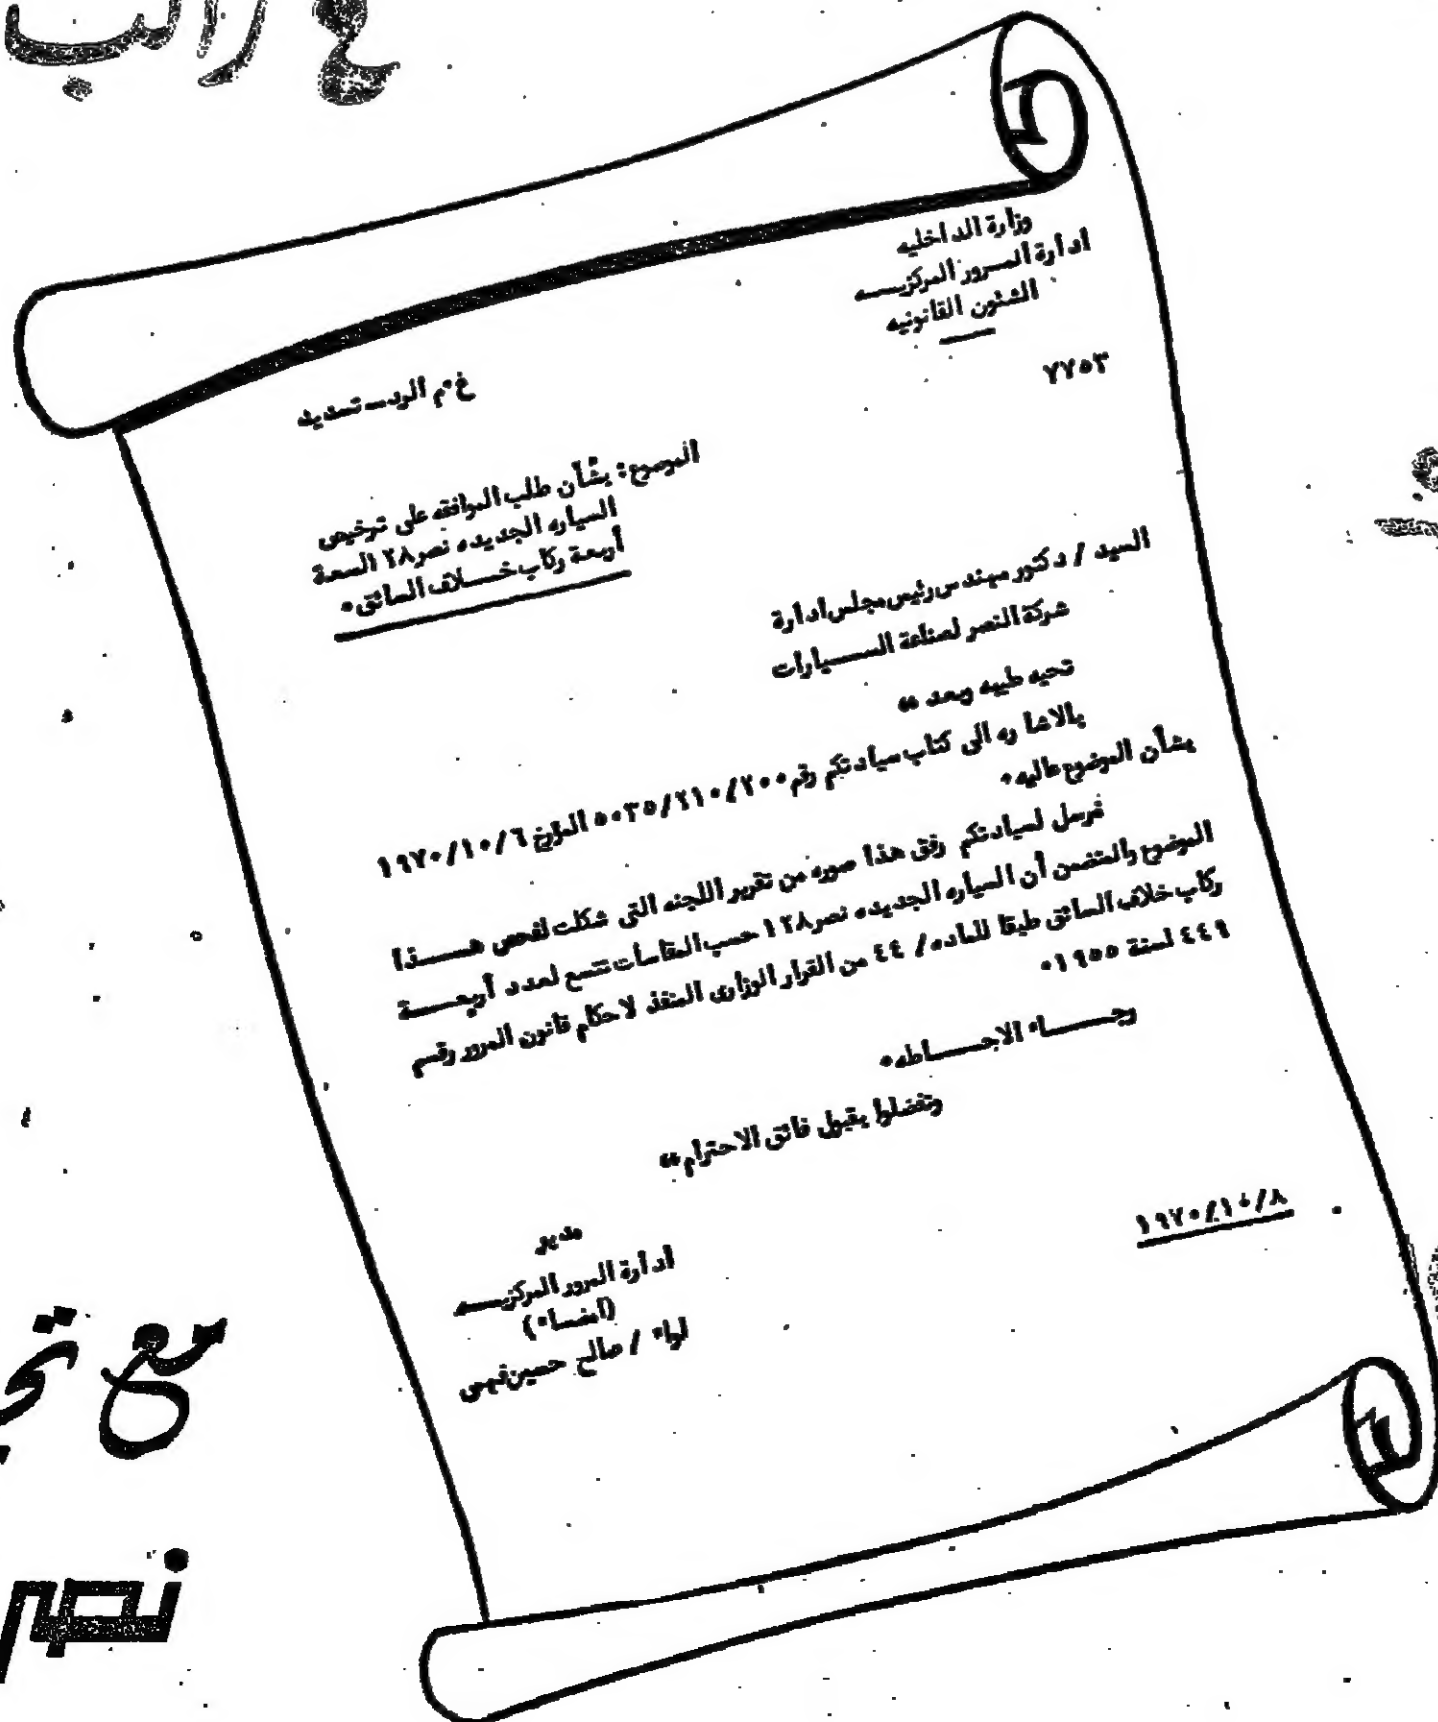 ع راتب
وزارة الداخليه
ادارة المـرور المركزيـــه
الشئون القانونيه
٧٧٥٣
الموضوع: بشأن طلب الموافقه على ترخيص
السياره الجديده نصر ٢٨ السعة
أربعة ركاب خـــلاف السائق٠
السيد / دكتور مهندس رئيس مجلس ادارة
شركة النصر لصناعة الســـيارات
تحيه طيبه وبعد ،،
بالاشاره الى كتاب سيادتكم رقم ٢٠٠/٢١٠/٥٠٣٥ المؤرخ ١٩٧٠/١٠/٦
بشأن الموضوع عاليه ٠
نرسل لسيادتكم رفق هذا صوره من تقرير اللجنه التى شكلت لفحص هــــذا
الموضوع والمتضمن أن السياره الجديده نصر ١٢٨ حسب المقاسات تتسع لعدد أربعـــة
ركاب خلاف السائق طبقا للماده / ٤٤ من القرار الوزارى المنفذ لاحكام قانون المرور رقسم
٤٤٩ لسنة ١٩٥٥٠
رجــــاء الاحـــاطه٠
وتفضلوا بقبول فائق الاحترام ،،
١٩٧٠/١٠/٨
مدير
ادارة المرور المركزيـــه
(امضاء)
لواء / صالح حسين فهمى
مع
نصر